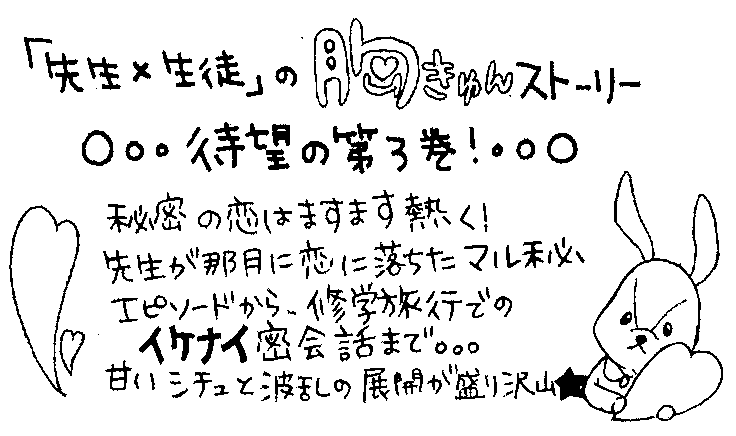 「先生×生徒」の胸きゅんストーリー
○○○待望の第3巻!○○○
秘密の恋はますます熱く!
先生が那月に恋に落ちたマル秘
エピソードから、修学旅行での
イケナイ密会話まで○○○
甘いシチュと波乱の展開が盛り沢山★